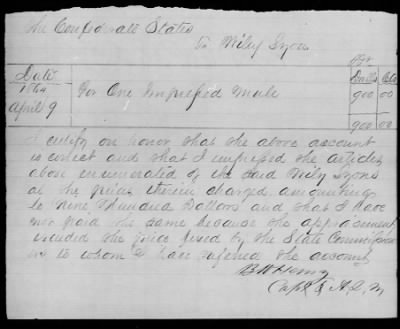 The Confederate States
To Wily Lyon
Date
Dolls Cts
1864
April 9
For One Impressed Mule
900 00
900 00
I certify on honor that the above account
is correct and that I impressed the articles
above enumerated of the said Wily Lyons
at the prices therein charged, amounting
to Nine Hundred Dollars and that I have
not paid the same because the appraisement
exceeded the price fixed by the State Commission
ers to whom I have referred the account
B H Henry
Capt & A. Q. M.